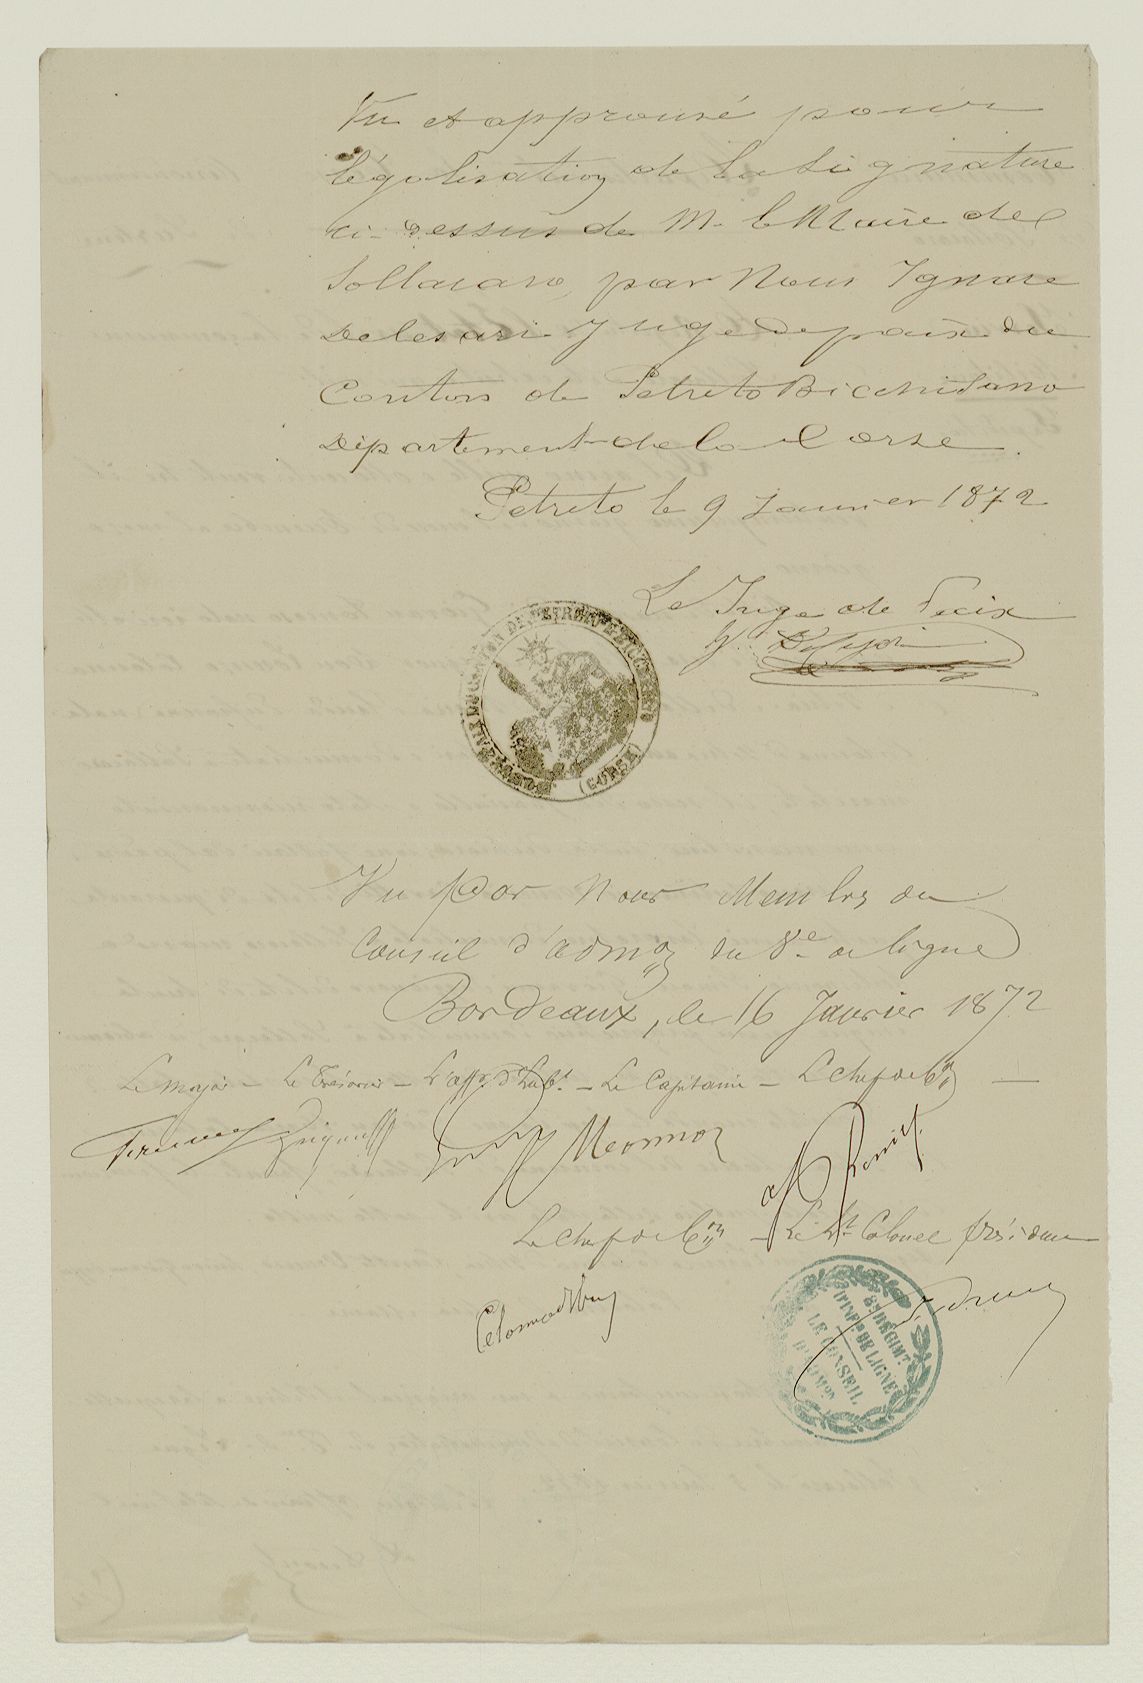 Vu et approuvé pour
légalisation de la signature
ci-dessus de M. le Maire de
Sollacaro, par Nous Ignace
Delesari Juge de paix du
Canton de Petreto Bicchisano
Département de la Corse.
Petreto le 9 Janvier 1872
Le Juge de Paix
(CORSE)
Vu par Nous Membres du
Conseil d'admon du 8e de ligne
Bordeaux, le 16 Janvier 1872
Le Major - Le Trésorier - L'offr d'habt - Le Capitaine - Le chef de bon
Le chef de bon - Le Lt Colonel président
8e RÉGIMT
D'INFie DE LIGNE
LE CONSEIL
D'ADMon